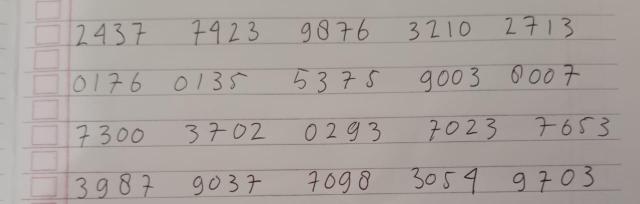 2437 7923 9876 3210 2713
0176 0135 5375 9003 0007
7300 3702 0293 7023 7653
3987 9037 7098 3054 9703